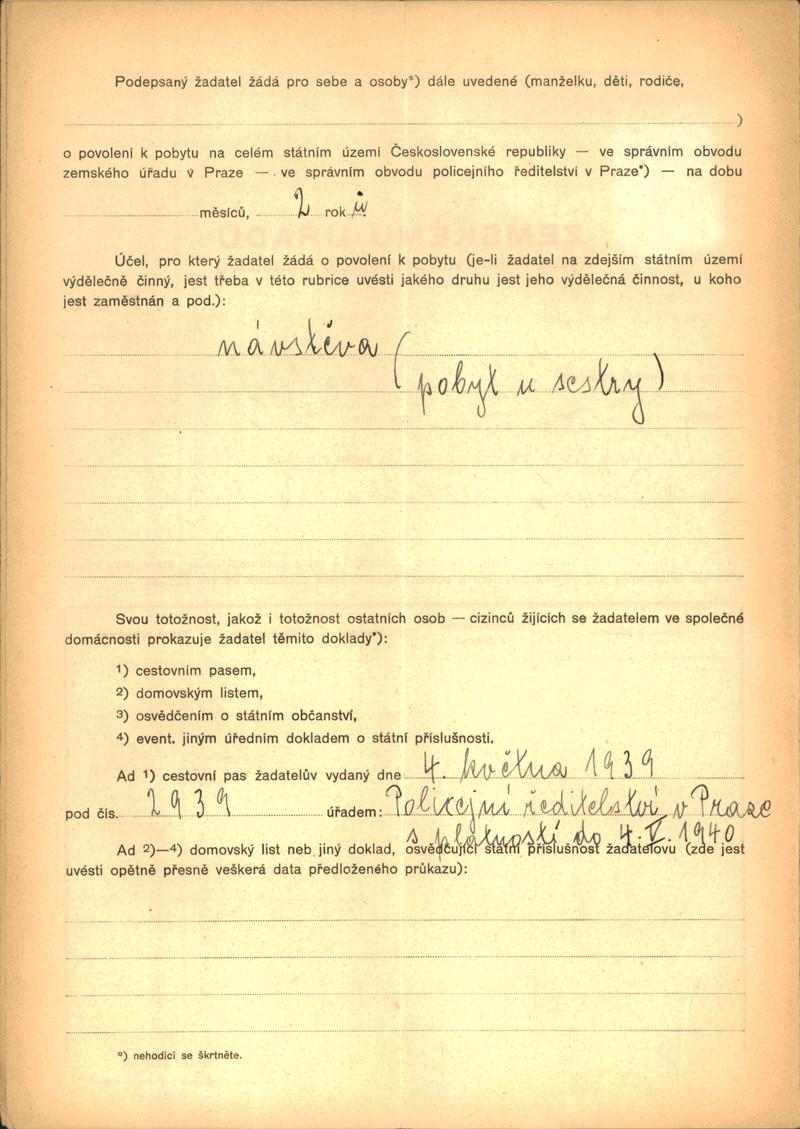 Podepsaný žadatel žádá pro sebe a osoby*) dále uvedené (manželku, děti, rodiče,
)
o povolení k pobytu na celém státním území Československé republiky — ve správním obvodu
zemského úřadu v Praze — ve správním obvodu policejního ředitelství v Praze*) — na dobu
měsíců, 2 rok ů
Účel, pro který žadatel žádá o povolení k pobytu (je-li žadatel na zdejším státním území
výdělečně činný, jest třeba v této rubrice uvésti jakého druhu jest jeho výdělečná činnost, u koho
jest zaměstnán a pod.):
návstěva (
pobyt u sestry)
Svou totožnost, jakož i totožnost ostatních osob — cizinců žijících se žadatelem ve společné
domácnosti prokazuje žadatel těmito doklady*):
1) cestovním pasem,
2) domovským listem,
3) osvědčením o státním občanství,
4) event. jiným úředním dokladem o státní příslušnosti.
Ad 1) cestovní pas žadatelův vydaný dne 4. května 1939
pod čís. 2939 úřadem: Policejní ředitelství v Praze
s platností do 4. V. 1940
Ad 2)—4) domovský list neb jiný doklad, osvědčující státní příslušnost žadatelovu (zde jest
uvésti opětně přesně veškerá data předloženého průkazu):
*) nehodící se škrtněte.